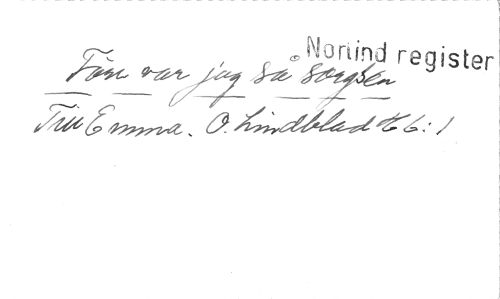 Nortind register
Förr var jag så sorgsen
Till Emma. O. Lindblad H 6:1